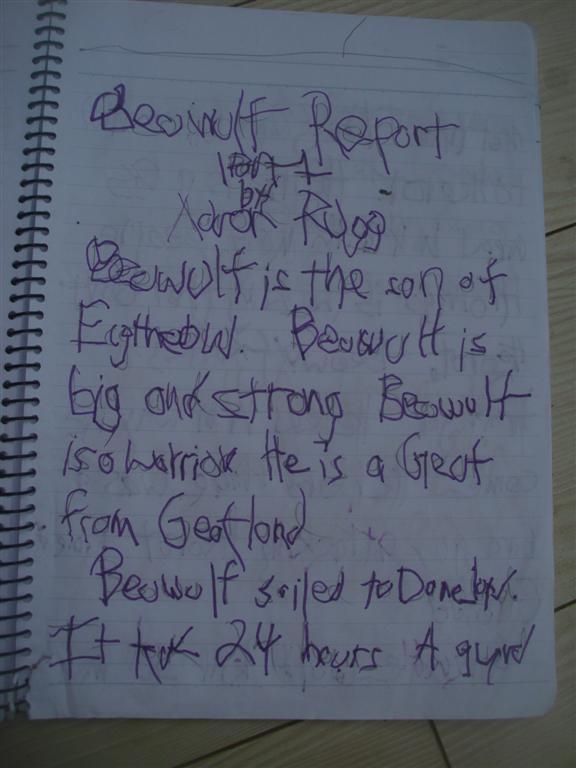 Beowulf Report
part 1
by
Report
Beowulf is the son of
Egtheow. Beowulf is
big and strong Beowulf
is a warrior He is a Geat
from Geatland
Beowulf sailed to
It took 24 hours A